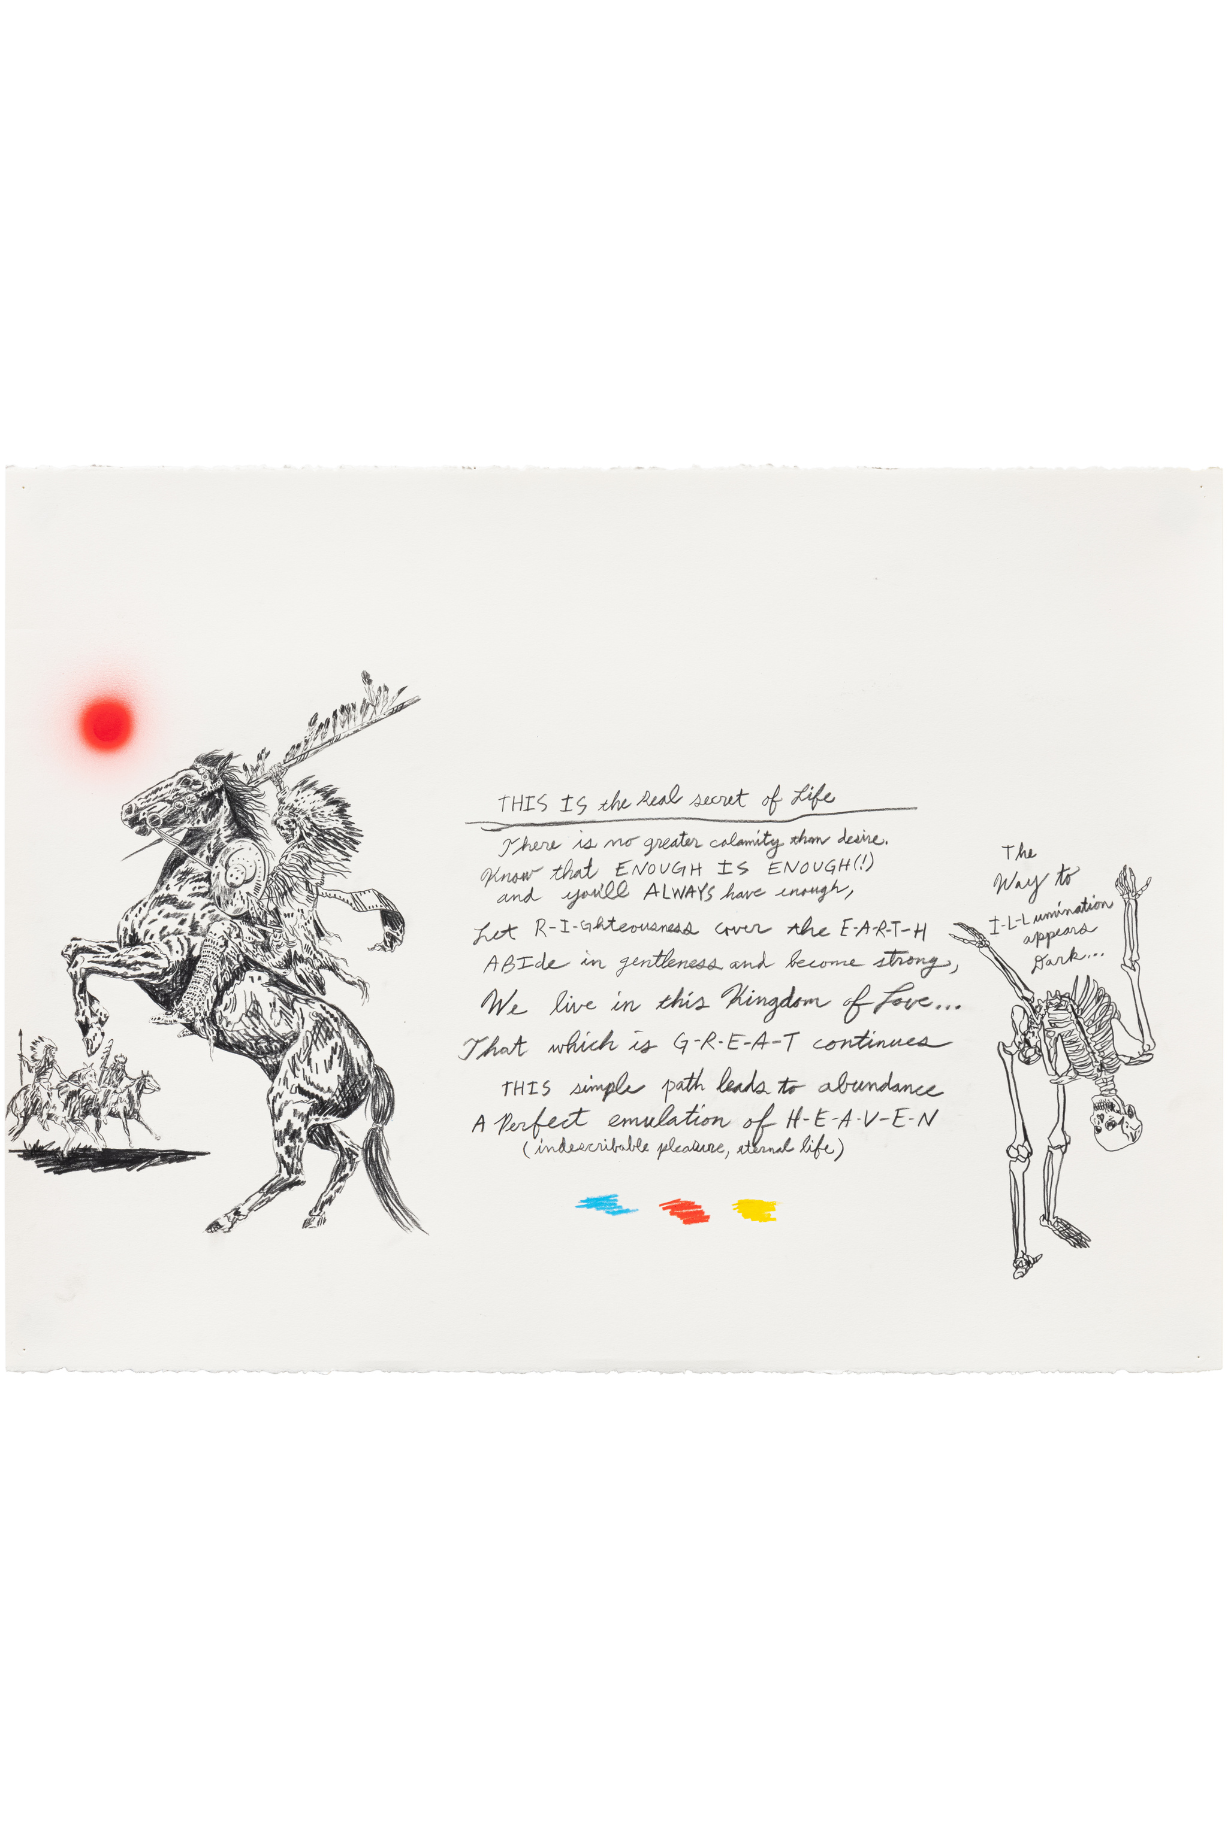 THIS IS the Real secret of Life
There is no greater calamity than desire.
Know that ENOUGH IS ENOUGH(!)
and you'll ALWAYS have enough,
Let R-I-Ghteousness cover the E-A-R-T-H
ABIde in gentleness and become strong,
We live in this Kingdom of Love...
That which is G-R-E-A-T continues
THIS simple path leads to abundance
A Perfect emulation of H-E-A-V-E-N
(indescribable pleasure, eternal life)
The
Way to
I-L-Lumination
appears
Dark...